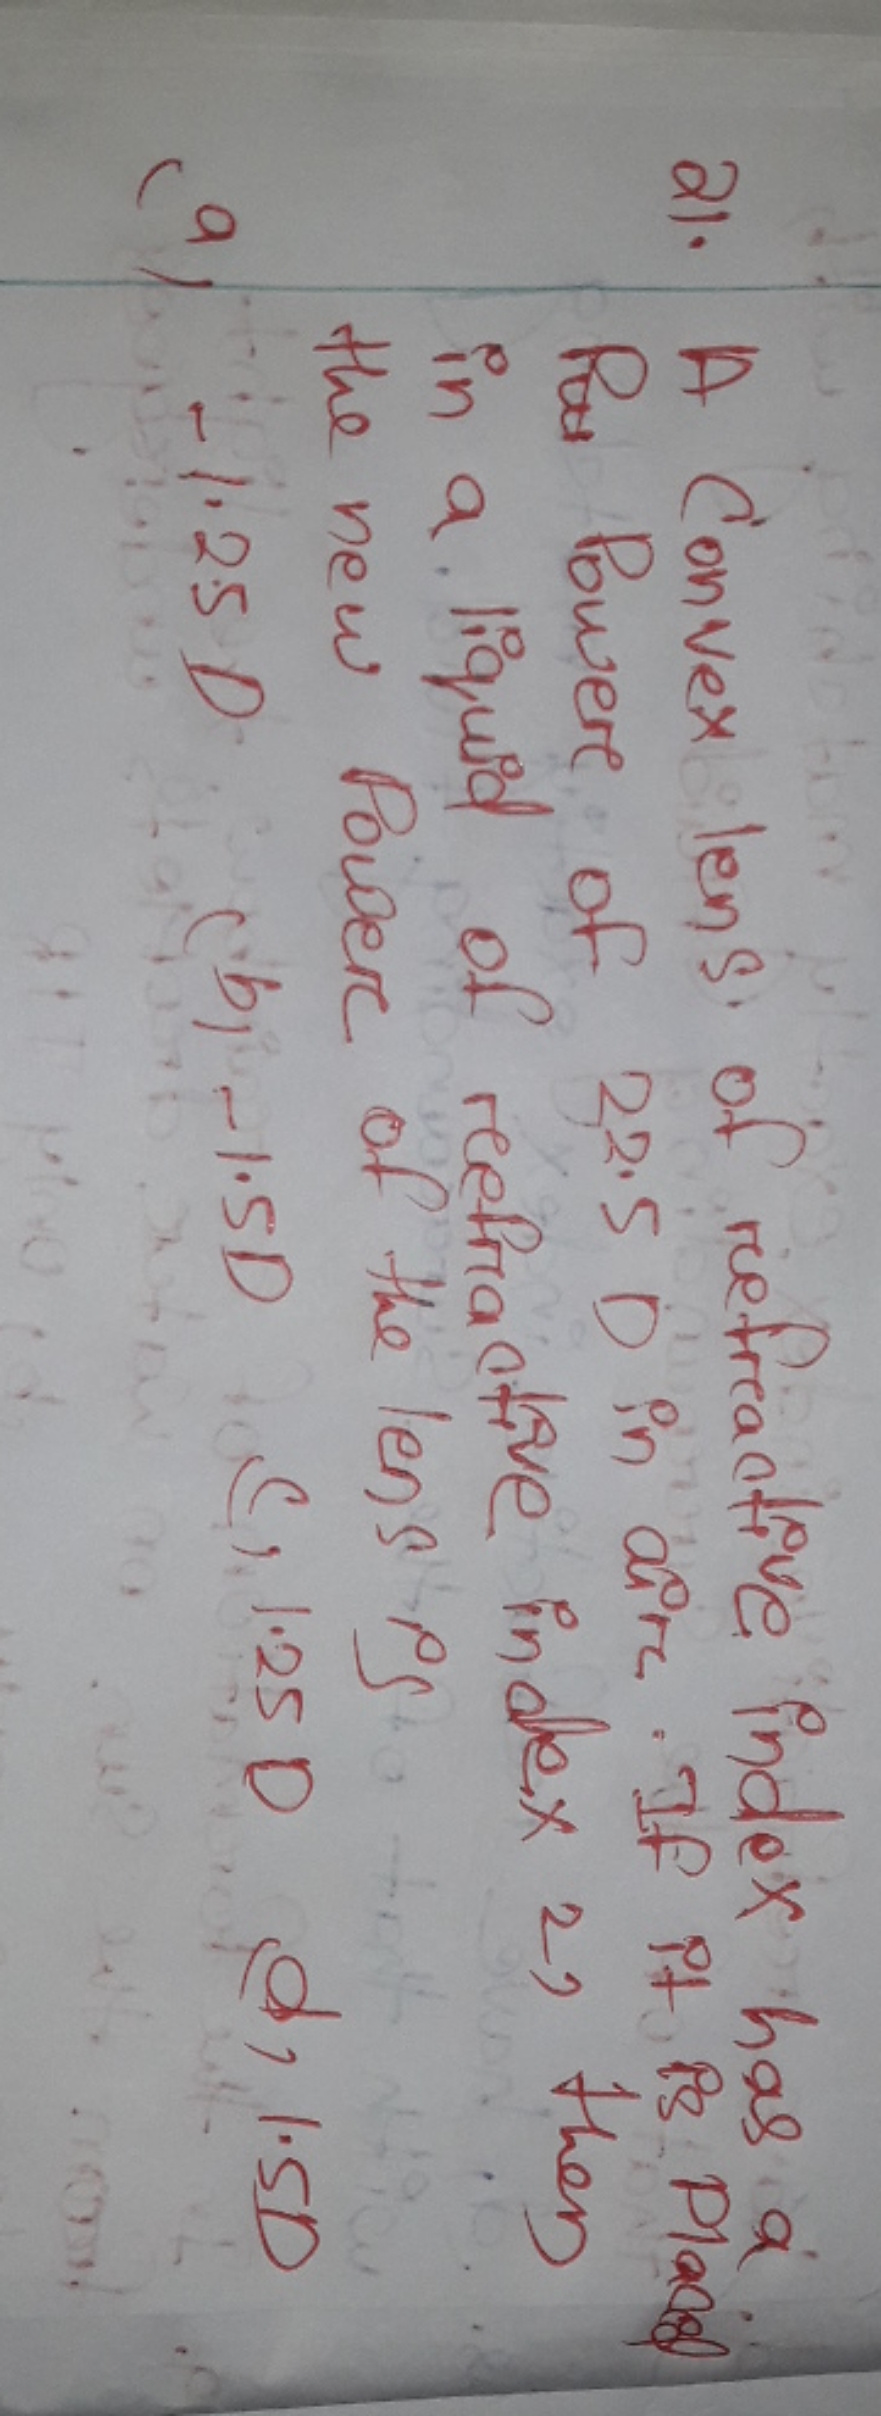 21. A Convex lens of refractive index has a
Power of 2.5 D in air. If it is Placed
in a liquid of refractive index 2, then
the new Power of the lens is
(a) -1.25 D (b) -1.5D (c) 1.25 D (d) 1.5D